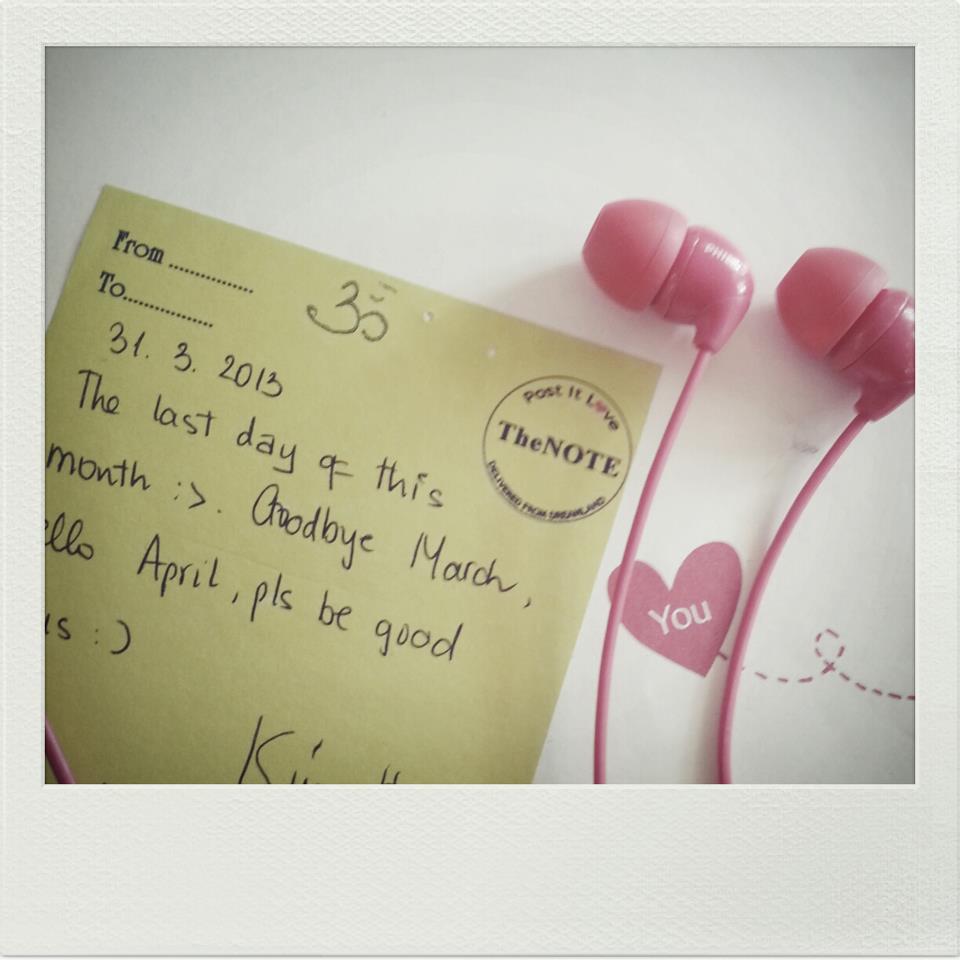 From ...............
To...............
ॐ
31. 3. 2013
The last day of this
month :>. Goodbye March,
ello April, pls be good
us :)
Post It L♥ve
TheNOTE
DELIVERED FROM DREAMLAND
You